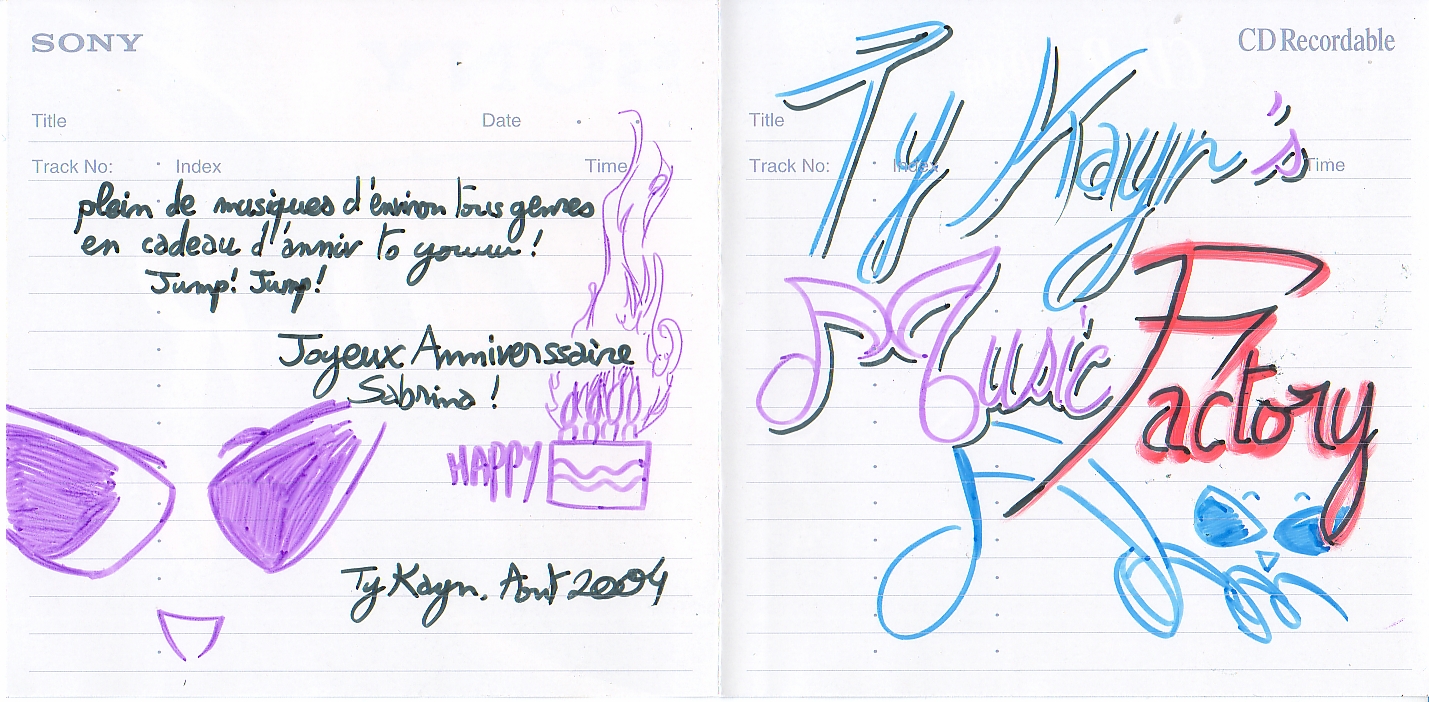 SONY
Title Date
Track No: Index Time
plein de musiques d'environ tous genres
en cadeau d'anniv to youuu !
Jump! Jump!
Joyeux Anniverssaire
Sabrina !
HAPPY
Ty Kayn. Aout 2004
CD Recordable
Title
Track No: Index Time
Ty Kayn's
Music
Factory